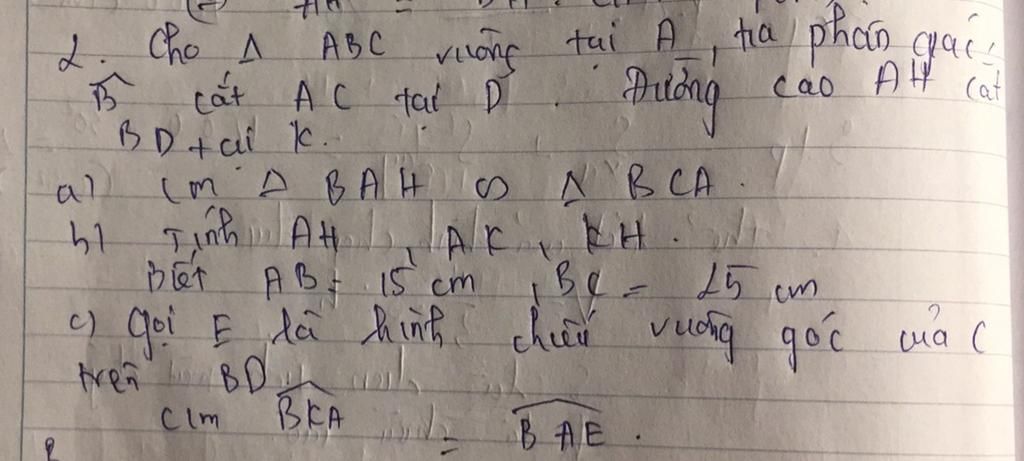 2. Cho Δ ABC vuông tại A, tia phân giác
B̂ cắt AC tại D. Đường cao AH cắt
BD tại K.
a) Cm Δ BAH ∽ Δ BCA.
b) Tính AH, AK, KH.
Biết AB = 15 cm, BC = 25 cm
c) Gọi E là hình chiếu vuông góc của C
trên BD.
Cm BKA = BAE.